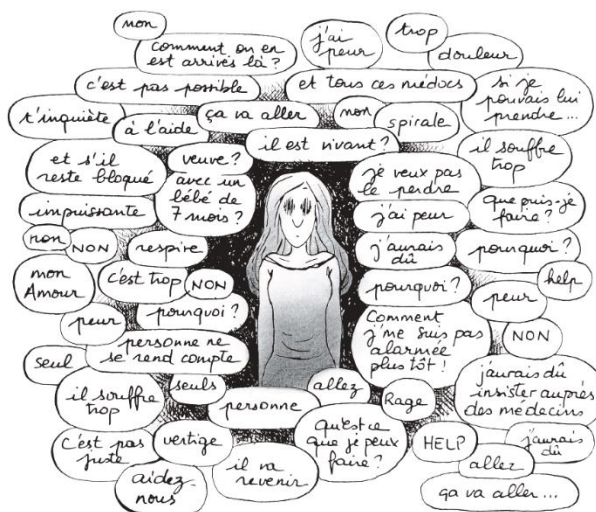 non
comment on en
est arrivés là ?
j'ai
peur
trop
douleur
c'est pas possible
et tous ces médocs
si je
pouvais lui
prendre...
t'inquiète
à l'aide
ça va aller
non
spirale
il est vivant ?
il souffre
trop
et s'il
reste bloqué
veuve ?
avec un
bébé de
7 mois ?
je veux pas
le perdre
impuissante
j'ai peur
que puis-je
faire ?
non
NON
respire
j'aurais
dû
pourquoi ?
mon
Amour
c'est trop
NON
pourquoi ?
help
peur
peur
pourquoi ?
Comment
j'me suis pas
alarmée
plus tôt !
NON
personne ne
se rend compte
seul
seuls
allez
Rage
j'aurais dû
insister auprès
des médecins
il souffre
trop
personne
qu'est ce
que je peux
faire ?
HELP
j'aurais
dû
c'est pas
juste
vertige
il va
revenir
allez
aidez-
nous
ça va aller...